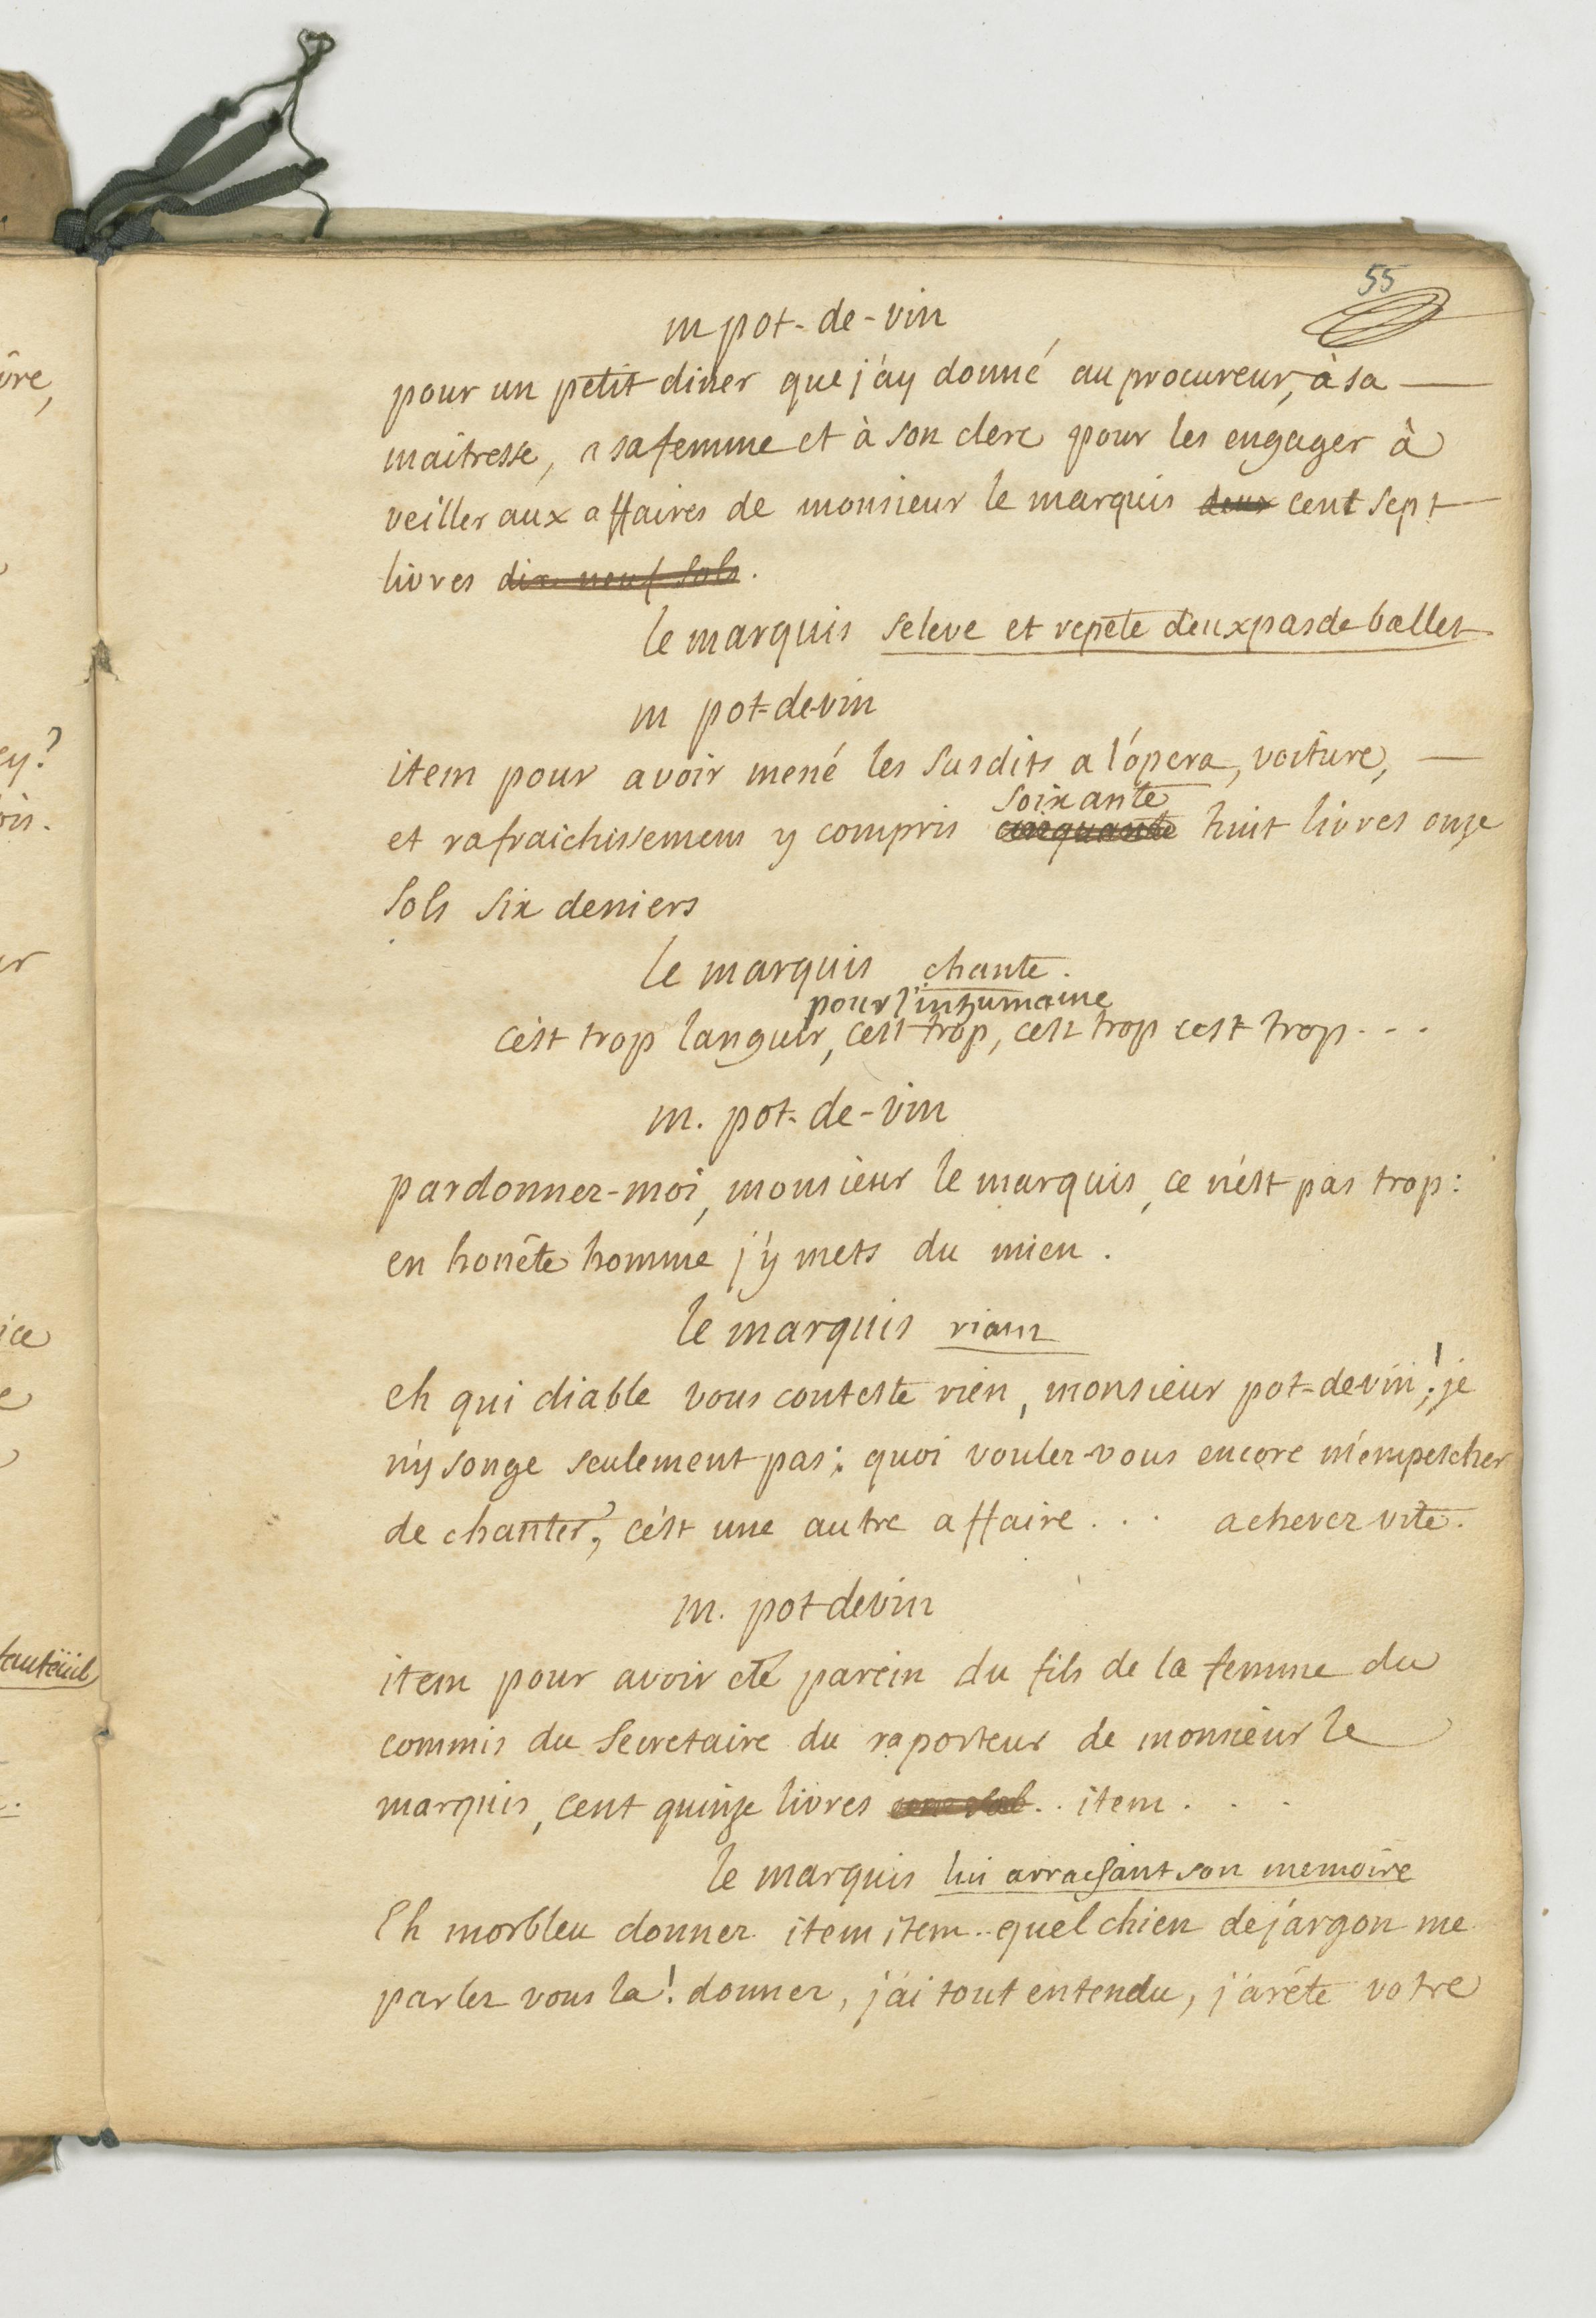 55
m pot-de-vin
pour un petit diner que j'ay donné au procureur, à sa
maitresse, a sa femme et à son clerc pour les engager à
veiller aux affaires de monsieur le marquis deux cent sept
livres dix neuf sols.
le marquis se leve et repete deux pas de ballet
m pot-de-vin
item pour avoir mené les susdits a l'ópera, voiture,
soixante
et rafraichissemens y compris cinquante huit livres onze
sols six deniers
le marquis chante.
pour l'inhumaine
c'est trop languir, c'est trop, c'est trop c'est trop...
m. pot-de-vin
pardonnez-moi, monsieur le marquis, ce n'est pas trop:
en honête homme j'y mets du mien.
le marquis riant
eh qui diable vous conteste rien, monsieur pot-de-vin! je
n'y songe seulement pas: quoi voulez-vous encore m'empescher
de chanter, c'est une autre affaire... achevez vite.
m. pot devin
item pour avoir eté parein du fils de la femme du
commis du secretaire du raporteur de monsieur le
marquis, cent quinze livres .. item...
le marquis lui arrachant son memoire
Eh morbleu donnez item item.. quel chien de jargon me
parlez vous la! donnez, j'ai tout entendu, j'arête votre
vre,
ey?
ois.
ur
ice
e
fauteüil